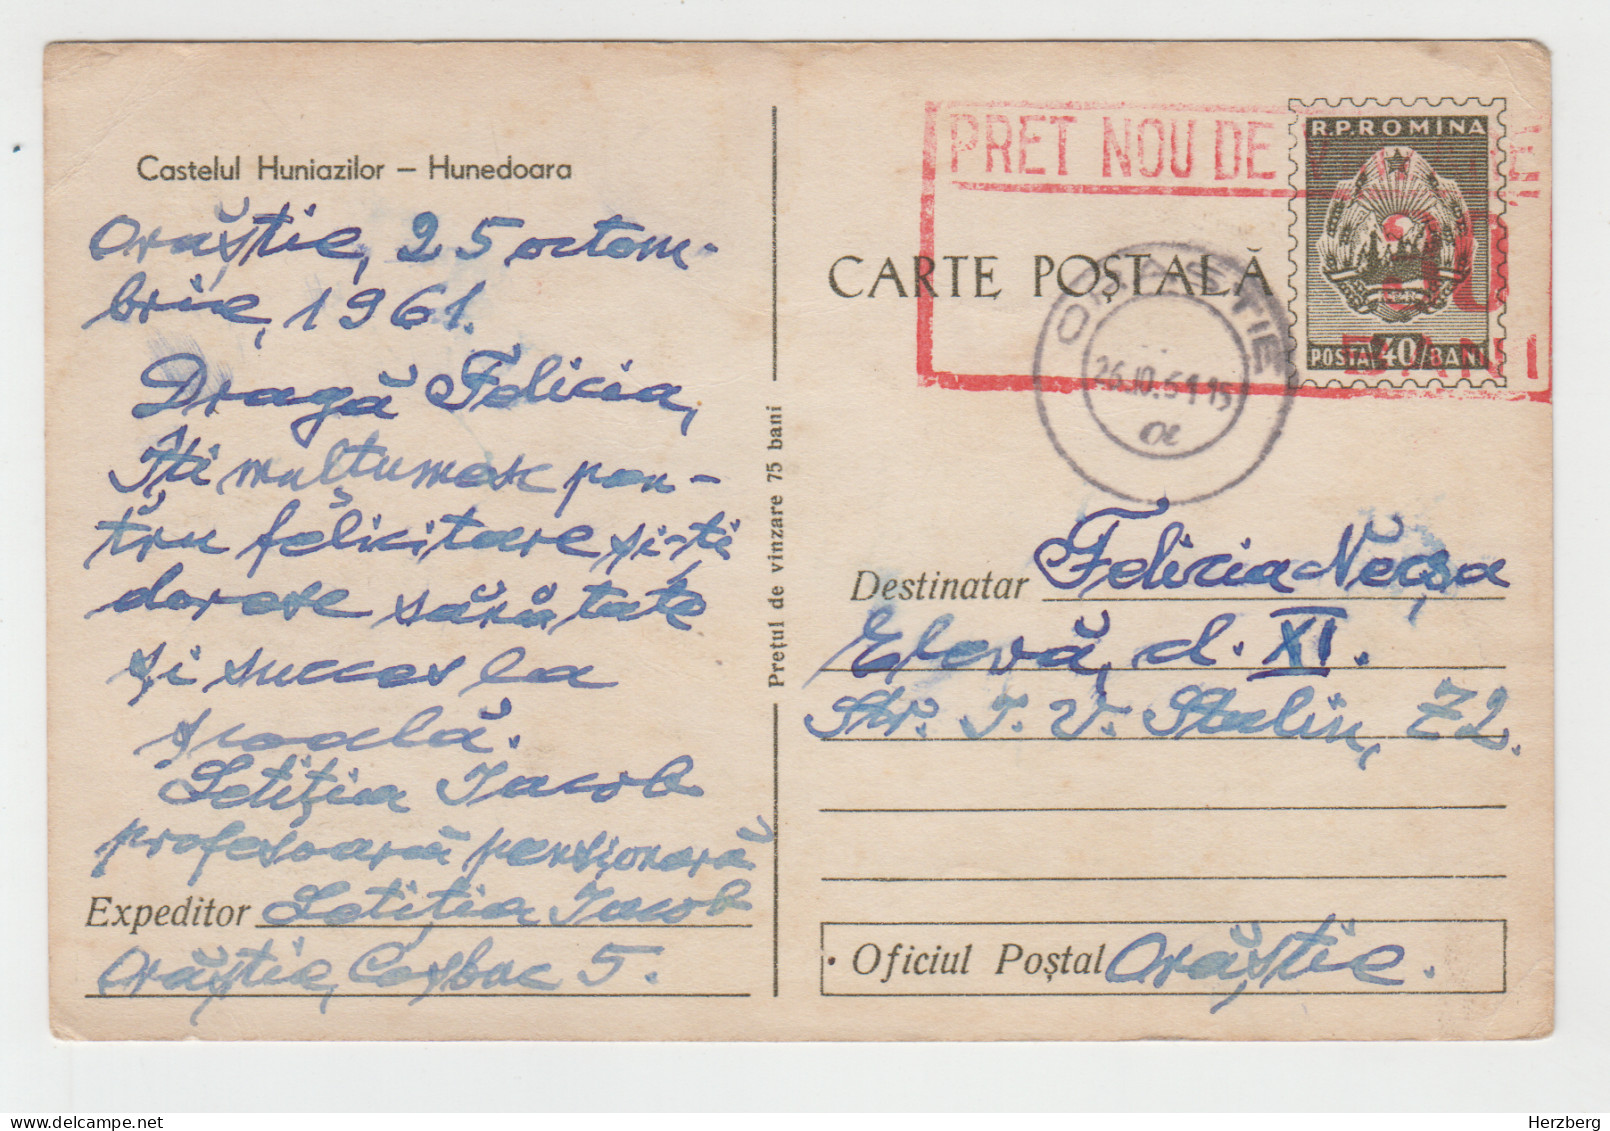 Castelul Huniazilor – Hunedoara
Orăștie, 25 octom-
brie, 1961.
Dragă Felicia,
Îți mulțumesc pen-
tru felicitare și-ți
doresc sănătate
și succes la
școală.
Letiția Iacob
profesoară pensionară
Expeditor Letiția Iacob
Orăștie, Coșbuc 5.
Prețul de vînzare 75 bani
PRET NOU DE
30
BANI
R.P.ROMINA
POSTA 40 BANI
CARTE POȘTALĂ
ORĂȘTIE
26.10.61-15
Destinatar Felicia Necșa
Elevă, cl. XI.
Str. I. V. Stalin, 72.
Oficiul Poștal Orăștie.
Herzberg